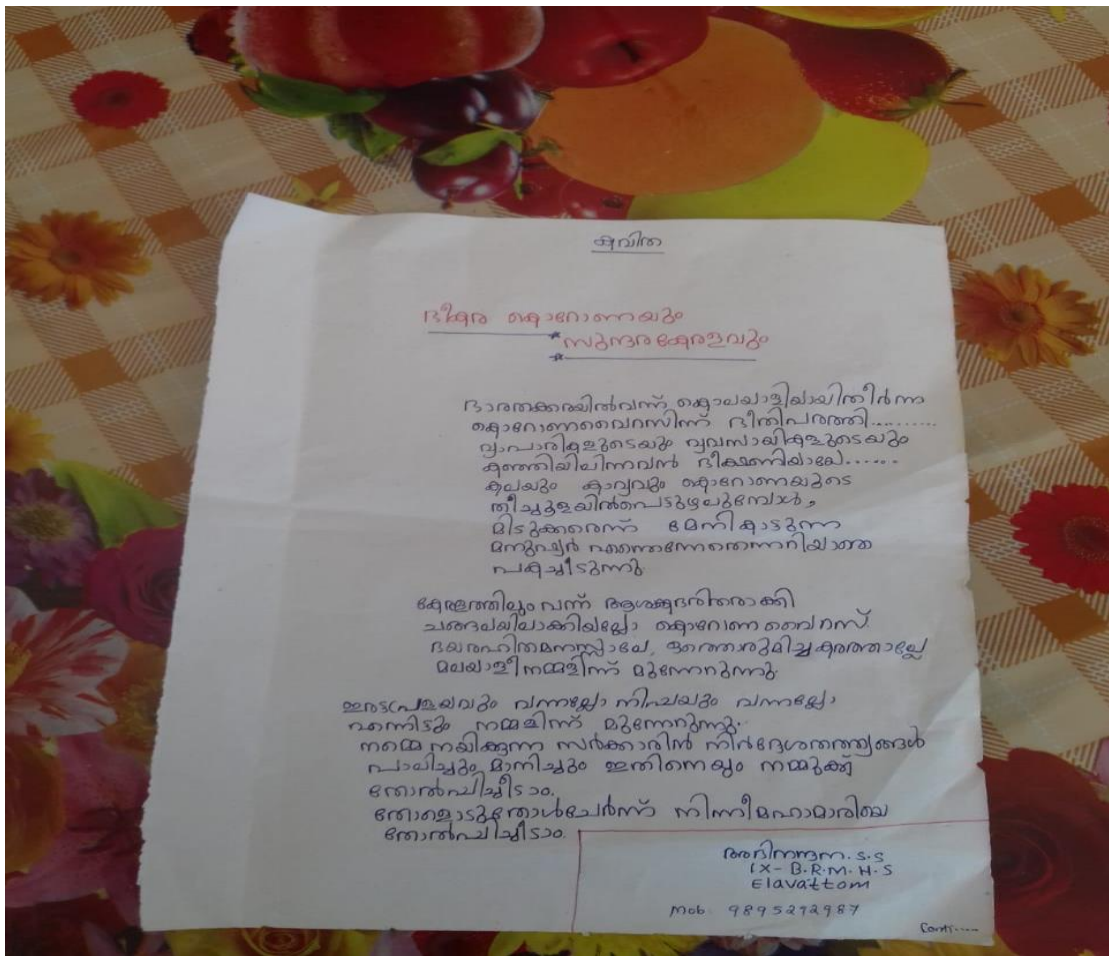 കവിത
ഭീകര കൊറോണയും
സുന്ദരകേരളവും
ഭാരതക്കരയിൽവന്ന് കൊലയാളിയായിതീർന്ന
കൊറോണവൈറസിന്ന് ഭീതിപരത്തി.........
വ്യാപാരികളുടെയും വ്യവസായികളുടെയും
കഞ്ഞിയിലിന്നവൻ ഭീഷണിയാലേ......
കലയും കാവ്യവും കൊറോണയുടെ
തീച്ചൂളയിൽപെട്ടുഴലുമ്പോൾ,
മിടുക്കരെന്ന് മേനികാട്ടുന്ന
മനുഷ്യർ എന്തെന്നേതെന്നറിയാതെ
പകച്ചീടുന്നു.
കേരളത്തിലും വന്ന് ആശങ്കഭരിതരാക്കി
ചങ്ങലയിലാക്കിയല്ലോ കൊറോണ വൈറസ്.
ഭയരഹിതമനസ്സാലേ, ഒത്തൊരുമിച്ചകരത്താലേ
മലയാളീനമ്മളിന്ന് മുന്നേറുന്നു.
ഇരട്ടപ്രളയവും വന്നല്ലോ നിപ്പയും വന്നല്ലോ
എന്നിട്ടും നമ്മളിന്ന് മുന്നേറുന്നു.
നമ്മെ നയിക്കുന്ന സർക്കാരിൻ നിർദ്ദേശതത്ത്വങ്ങൾ
പാലിച്ചും മാനിച്ചും ഇതിനെയും നമ്മുക്ക്
തോൽപ്പിച്ചീടാം.
തോളൊടുതോൾചേർന്ന് നിന്നീമഹാമാരിയെ
തോൽപ്പിച്ചീടാം.
അഭിനന്ദന.S.S
IX- B.R.M.H.S
Elavattom
Mob: 9895292987
Conti.....